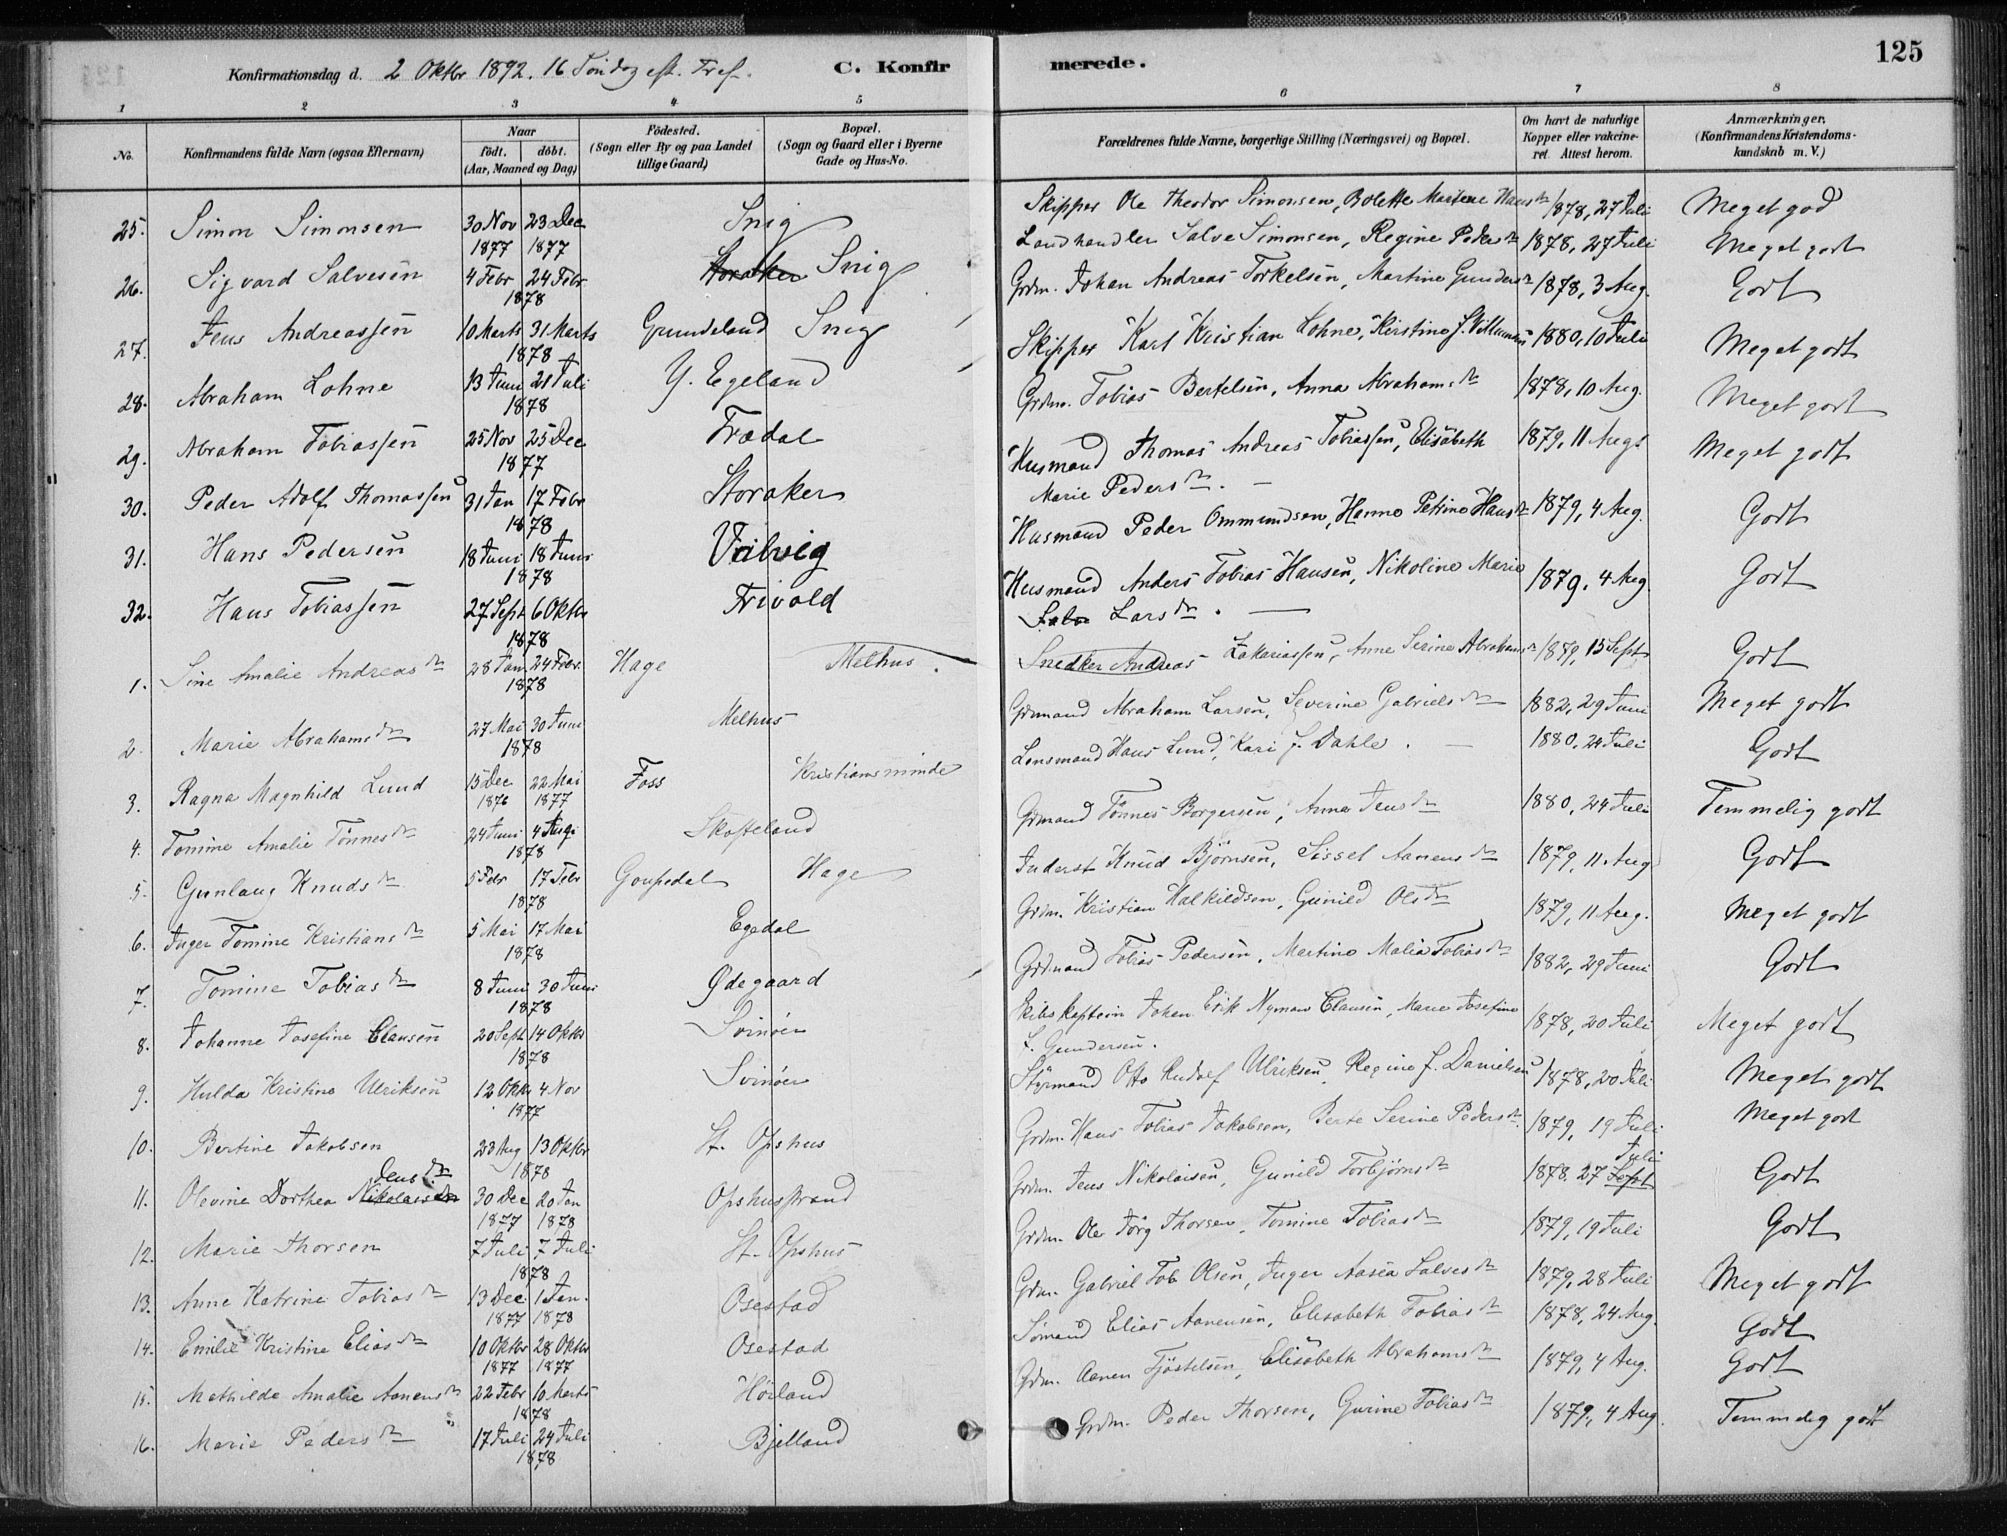 125
Konfirmationsdag d. 2 Oktbr 1892. 16 Søndag eft. Tref. C. Konfirmerede.
1 2 3 4 5 6 7 8
No. Konfirmandens fulde Navn (ogsaa Efternavn) Naar födt. döbt. (Aar, Maaned og Dag) Födested. (Sogn eller By og paa Landet tillige Gaard) Bopæl. (Sogn og Gaard eller i Byerne Gade og Hus-No. Forældrenes fulde Navne, borgerlige Stilling (Næringsvei) og Bopæl. Om havt de naturlige Kopper eller vakcineret. Attest herom. Anmærkninger. (Konfirmandens Kristendomskundskab m. V.)
25. Simon Simonsen 30 Nov 1877 23 Dec 1877 Snig Skipper Ole Theodor Simonsen, Bolette Martene Hansdtr 1878, 27 Juli Meget god
26. Sigvard Salvesen 4 Febr 24 Febr 1878 Storaker Snig Landhandler Salve Simonsen, Regine Pedersdtr 1878, 27 Juli Meget godt
27. Jens Andreassen 10 Marts 31 Marts 1878 Grundeland Snig Grdm. Johan Andreas Torkelsen, Martine Gundersdtr 1878, 3 Aug. Godt
28. Abraham Lohne 13 Juni 21 Juli 1878 Y. Egeland Skipper Karl Kristian Lohne, Kirstine f. Willumsen 1880, 10 Juli Meget godt
29. Abraham Tobiassen 25 Nov 25 Dec 1877 Tredal Grdm. Tobias Bertelsen, Anna Abrahamsdtr 1878, 10 Aug. Meget godt
30. Peder Adolf Thomassen 31 Jan 17 Febr 1878 Storaker Husmand Thomas Andreas Tobiassen, Elisabeth Marie Pedersdtr. 1879, 11 Aug Meget godt
31. Hans Pedersen 18 Juni 18 Juni 1878 Valvig Husmand Peder Ommundsen, Hanne Petrine Hansdtr 1879, 4 Aug. Godt
32. Hans Tobiassen 27 Sept 6 Oktbr 1878 Trivold Husmand Anders Tobias Hansen, Nikoline Marie Larsdtr. 1879, 4 Aug. Godt
1. Sine Amalie Andreasdtr 28 Jan 24 Febr. 1878 Hage Melhus. Snedker Andreas Zakariassen, Anne Serine Abrahamsdtr 1879, 15 Sept Godt
2. Marie Abrahamsdtr 27 Mai 30 Juni 1878 Melhus Grdmand Abraham Larsen, Severine Gabrielsdtr 1882, 29 Juni Meget godt
3. Ragna Magnhild Lund 15 Dec 1876 22 Mai 1877 Foss Kristiansminde Lensmand Hans Lund, Kari f. Dahle. 1880, 24 Juli Godt
4. Tomine Amalie Tönnesdtr 24 Juni 4 Aug 1878 Skofteland Grdmand Tönnes Borgersen, Anna Jensdtr 1880, 24 Juli Temmelig godt
5. Gunlaug Knudsdtr 5 Febr 17 Febr 1878 Goupedal Hage Inderst Knud Björnsen, Sissel Aanensdtr 1879, 11 Aug Godt
6. Inger Tomine Kristiansdtr 5 Mai 17 Mai 1878 Egedal Grdm. Kristian Halkildsen, Gunild Olsdtr 1879, 11 Aug. Meget godt
7. Tomine Tobiasdtr 8 Juni 30 Juni 1878 Ødegaard Grdmand Tobias Pedersen, Martine Malia Tobiasdtr 1882, 29 Juni Godt
8. Johanne Josefine Clausen 20 Sept 14 Oktbr 1878 Svinöer Skibskaptein Johan Erik Nyman Clausen, Marie Josefine f. Gundersen. 1878, 20 Juli Meget godt
9. Hulda Kristine Ulriksen 12 Oktbr 4 Nov 1877 Svinöer Styrmand Otto Rudolf Ulriksen, Regine f. Danielsen 1878, 20 Juli Meget godt
10. Bertine Jakobsen 23 Aug 13 Oktbr 1878 St. Opshus Grdm. Hans Tobias Jakobsen, Berte Serine Pedersdtr. 1879, 19 Juli Meget godt
11. Olevine Dorthea Nikolaisdtr Jensdtr 30 Dec 1877 20 Jan 1878 Opshusstrand Grdm. Jens Nikolaisen, Gunild Torbjörnsdtr 1878. 27 Sept Juli Godt
12. Marie Thorsen 7 Juli 7 Juli 1878 St. Opshus Grdm. Ole Jörg Thorsen, Tomine Tobiasdtr 1879, 19 Juli Godt
13. Anne Katrine Tobiasdtr 13 Dec. 1877 1 Jan. 1878 Osestad Grdm. Gabriel Tob Olsen, Inger Aasea Salvesdtr 1879, 28 Juli Meget godt
14. Emilie Kristine Eliasdtr 10 Oktbr 1877 28 Oktbr 1877 Osestad Sömand Elias Aanensen, Elisabeth Tobiasdtr 1878, 24 Aug. Godt
15. Mathilde Amalie Aanensdtr 22 Febr 10 Marts 1878 Höiland Grdm. Aanen Fjöstelsen, Elisabeth Abrahamsdtr 1879, 4 Aug. Godt
16. Marie Pedersdtr 17 Juli 24 Juli 1878 Bjelland Grdm. Peder Thorsen, Gurine Tobiasdtr 1879, 4 Aug. Temmelig godt